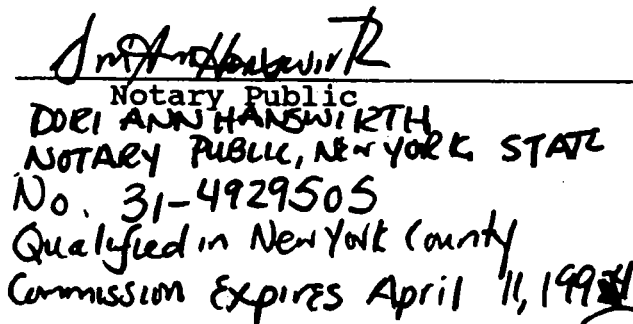 Notary Public
DORI ANN HANSWIRTH
NOTARY PUBLIC, New York STATE
No. 31-4929505
Qualified in New York County
Commission Expires April 11, 199